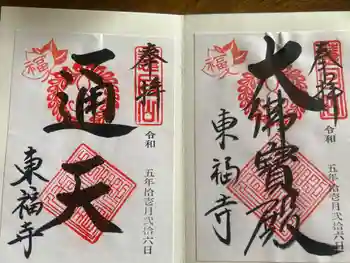 奉拝
大佛寳殿
東福寺
令和五年拾壱月弐拾六日
福
奉拝
通天
東福寺
令和五年拾壱月弐拾六日
福